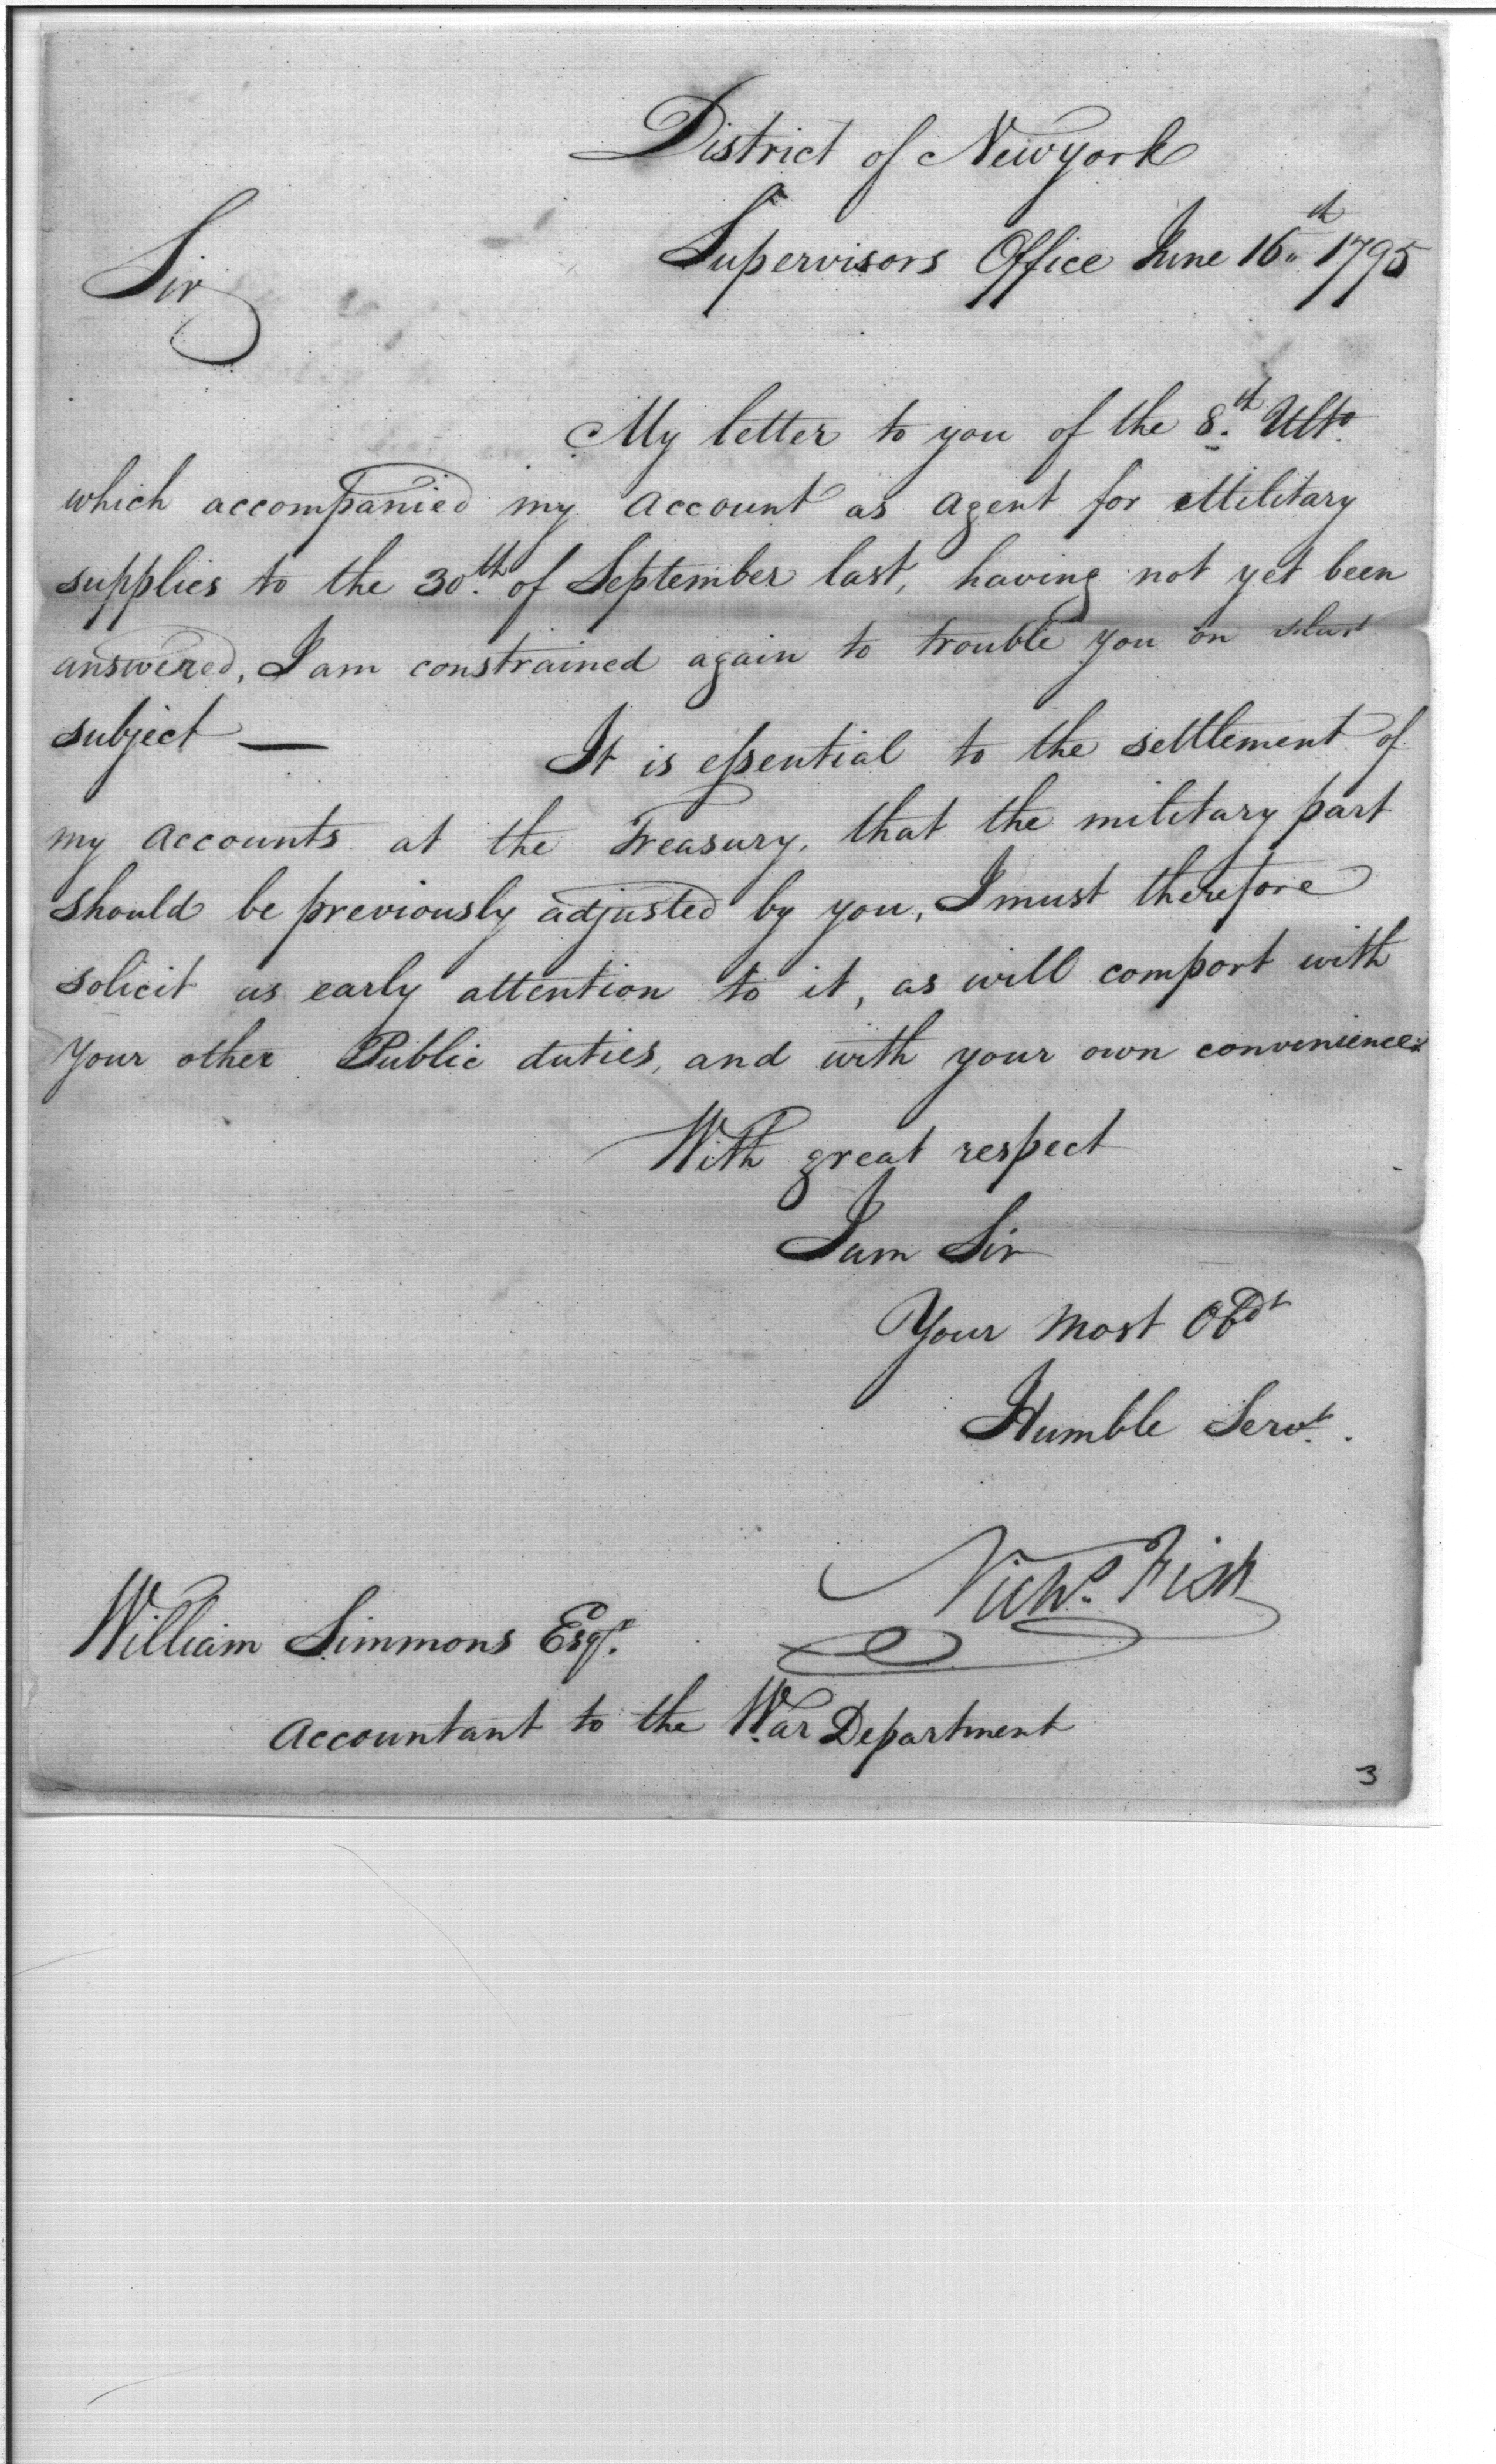 District of Newyork
Supervisors Office June 16th 1795
Sir
My letter to you of the 8th Ulto
which accompanied my Account as Agent for Military
supplies to the 30th of September last, having not yet been
answered, I am constrained again to trouble you on that
subject —
It is essential to the settlement of
my Accounts at the Treasury, that the military part
should be previously adjusted by you, I must therefore
solicit as early attention to it, as will comport with
your other Public duties, and with your own convenience.
With great respect
I am Sir
Your Most Obdt
Humble Servt.
Nichs. Fish
William Simmons Esqr.
Accountant to the War Department
3